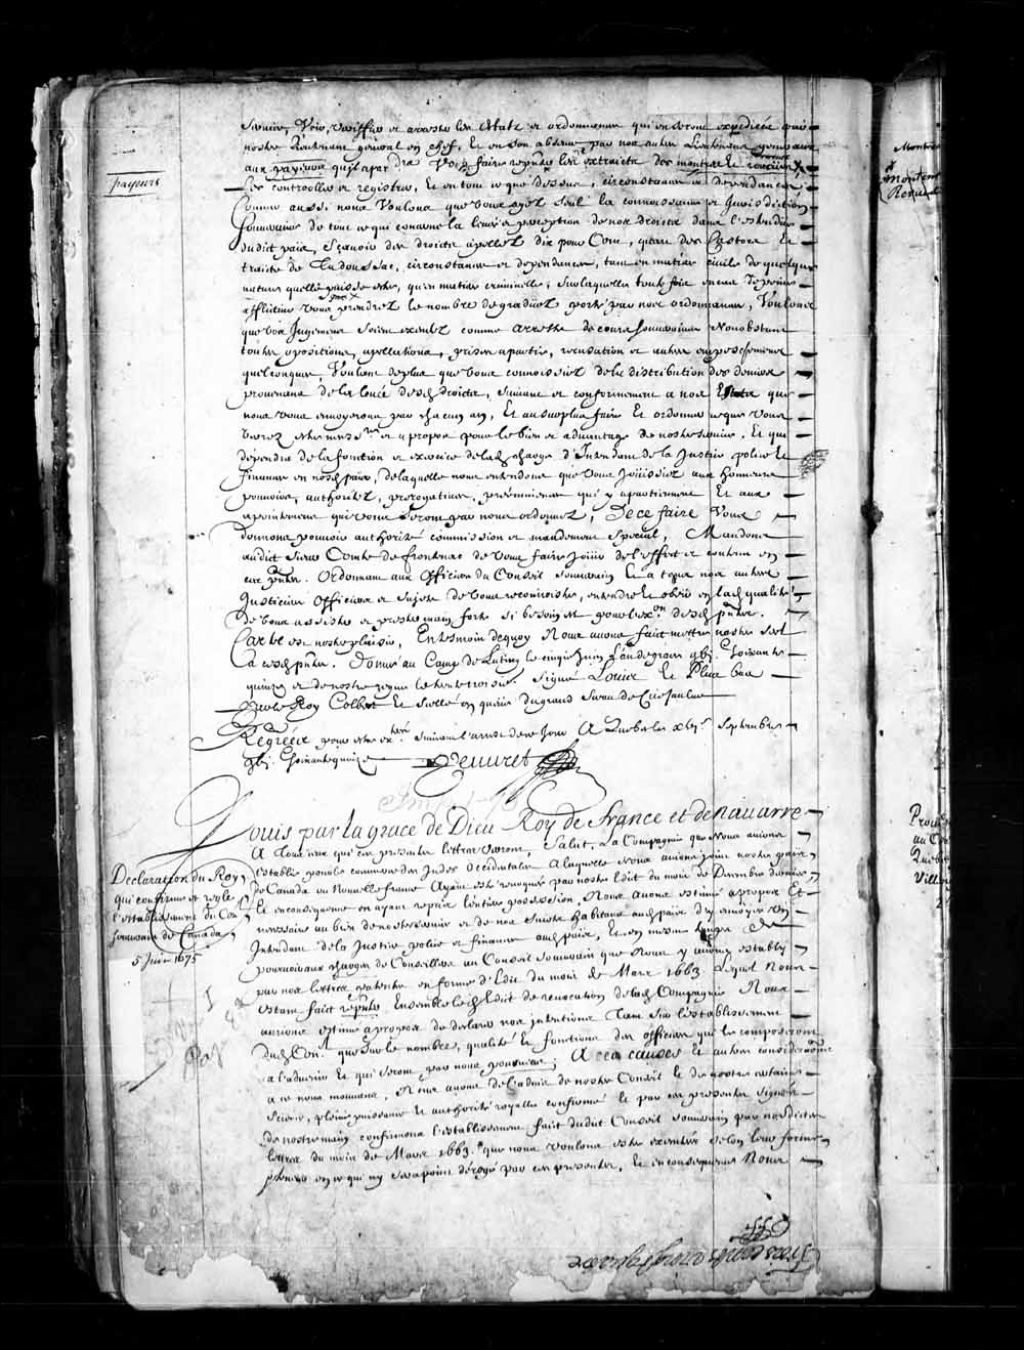 service, Voir, veriffier et arrester les estatz et ordonnances qui en seront expediées par
nostre Lieutenant general en chef, Et en son absence par nos autres Lieutenans generaux
aux payeurs quil apar.dra Vous faire repnter les extraicts des montres et reveües
payeurs
Les controoller et registrer, Et en tout ce que dessus, circonstances et deppendances,
Comme aussi nous Voulons que vous ayez seul la connoissance et Jurisdiction
Souveraine de tout ce qui concerne la levée et perception de nos droicts dans l'estendue
dudict païs, Sçavoir des droicts apellez dix pour Cent, quart des Castors Et
traicte de Tadoussac, circonstances et dependances, tant en matiere civile de quelque
nature quelle puisse estre, qu'en matiere criminelle, sur laquelle toutes fois en cas de peine
afflictive vous prendrez le nombre de graduez porté par nos ordonnances, Voulons
que vos Jugemens soient executez comme arrests de cours souveraines Nonobstant
toutes oppositions, apellations, prises a partie, recusation et autres empeschemens
quelconques, Voulons de plus que vous connoissiez de la distribution des deniers
provenans de la levée desd. droicts, suivant et conformement a nos Estats que
nous vous envoyerons par chacun an, Et au surplus faire Et ordonner ce que vous
verrez estre necess.re et a propos pour le bien et advantage de nostre service, Et qui
dependra de la fonction et exercice de lad. charge d'Intendant de la Justice police Et
finances en nosd. païs, de laquelle nous entendons que vous Joüissiez aux honneurs
pouvoirs, authoritez, prerogatives, preéminences qui y apartiennent Et aux
apointemens qui vous seront par nous ordonnez, De ce faire Vous
donnons pouvoir authorité commission et mandement special, Mandons
audict Sieur Comte de frontenac de vous faire Joüir de l'effect et contenu en
ces pntes. Ordonnons aux Officiers du Conseil souverain Et a tous nos autres
Justiciers Officiers et sujets de vous reconnoistre, entendre Et obeir en lad. qualité
de vous assister et prester main forte si besoin est pour l'ex.on desd. pntes.
Car tel est nostre plaisir, En tesmoin dequoy Nous avons faict mettre nostre Scel
a cesd. pntes. Donné au Camp de Latiny le cinq.e Juin l'an de grace gbj. Soixante
quinze et de nostre regne le trente troisie. Signé Louis Et Plus bas
Par le Roy Colbert Et scellé en queüe du grand Sceau de Cire jaulne
Regrées pour estre ex.tées suivant l'arrest de ce Jour A Quebec le xbj.e Septembre
gbj. Soixante quinze
Peuvret
Louis par la grace de Dieu Roy de france et de navarre
A Tous ceux qui ces presentes lettres verront, Salut, La Compagnie que Nous avions
establie pour le commerce des Indes Occidentales A laquelle Nous avions joint nostre païs
de Canada ou Nouvelle france Ayant esté revoquée par nostre Edit du mois de Decembre dernier
Et en consequence en ayant repris l'entiere possession, Nous avons estimé a propos Et
necessaire au bien de nostre service et de nos sujets habitans aud. païs d'y envoyer Un
Intendant de la Justice police et finances aud. païs, Et en mesme temps de
pourvoir aux charges de Conseillers au Conseil souverain que Nous y avons estably
par nos lettres patentes en forme d'Edit du mois de Mars 1663 Lequel Nous
estant faict repnter Ensemble led. Edit de revocation de lad. Compagnie Nous
aurions estimé a propos de declarer nos intentions Tant sur l'establissement
dud. Con.el que sur le nombre, qualité Et fonctions des officiers qui le composeront
a l'advenir Et qui seront par nous pourveus; A ces causes Et autres considerations
a ce nous mouvans, Nous avons de l'advis de nostre Conseil Et de nostre certaine
Science, plaine puissance Et authorité royalle confirmé Et par ces presentes signées
de nostre main confirmons l'establissement faict dudit Conseil souverain par nosdictes
lettres du mois de Mars 1663. que nous voulons estre executées selon leur forme
et teneur en ce qui n'y sera point derogé par ces presentes, Et en consequence Nous
Declaration du Roy
qui confirme et regle
l'establissement du Con.el
souverain de Canada
5 Juin 1675